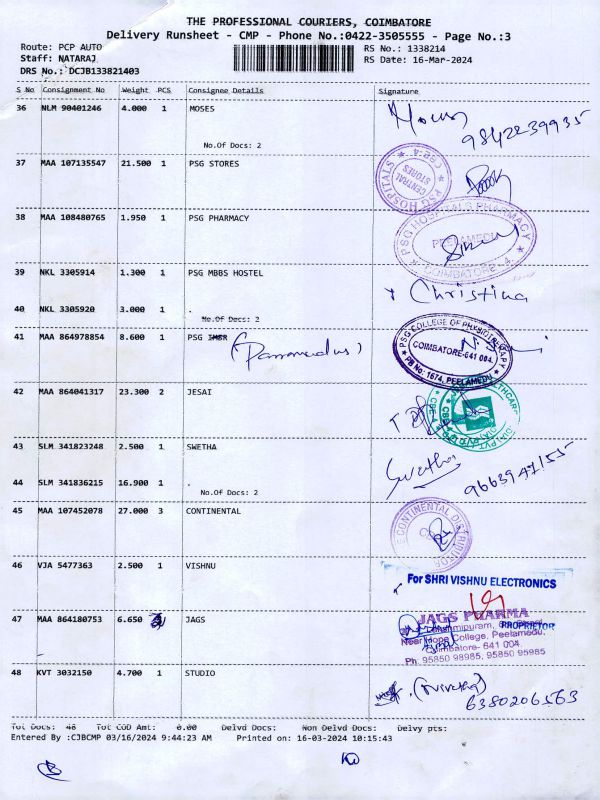 THE PROFESSIONAL COURIERS, COIMBATORE
Delivery Runsheet - CMP - Phone No.:0422-3505555 - Page No.:3
Route: PCP AUTO
RS No.: 1338214
Staff: NATARAJ
RS Date: 16-Mar-2024
DRS No.: DCJB133821403
S No Consignment No Weight PCS Consignee Details Signature
36 NLM 90401246 4.000 1 MOSES
No.Of Docs: 2
9842239935
37 MAA 107135547 21.500 1 PSG STORES
PSG HOSPITALS CBE-4 CENTRAL STORES
38 MAA 108480765 1.950 1 PSG PHARMACY
PSG HOSPITALS PHARMACY PEELAMEDU COIMBATORE - 4.
39 NKL 3305914 1.300 1 PSG MBBS HOSTEL
Christina
40 NKL 3305920 3.000 1 .
No.Of Docs: 2
41 MAA 864978854 8.600 1 PSG
PSG COLLEGE OF PHYSIOTHERAPY
COIMBATORE-641 004.
PB No: 1674, PEELAMEDU
42 MAA 864041317 23.300 2 JESAI
43 SLM 341823248 2.500 1 SWETHA
Swetha
9663947155
44 SLM 341836215 16.900 1 .
No.Of Docs: 2
45 MAA 107452078 27.000 3 CONTINENTAL
CONTINENTAL DISTRIBUTOR
46 VJA 5477363 2.500 1 VISHNU
For SHRI VISHNU ELECTRONICS
PROPRIETOR
47 MAA 864180753 6.650 JAGS
JAGS PHARMA
Near Hope College, Peelamedu,
Coimbatore- 641 004.
Ph: 95850 98985, 95850 95985
48 KVT 3032150 4.700 1 STUDIO
(Nivetha)
6380206563
Tot Docs: 48 Tot COD Amt: 0.00 Delvd Docs: Non Delvd Docs: Delvy pts:
Entered By :CJBCMP 03/16/2024 9:44:23 AM Printed on: 16-03-2024 10:15:43